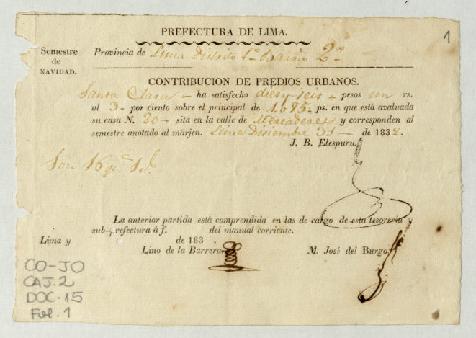 PREFECTURA DE LIMA.
1
Semestre
de
NAVIDAD.
Provincia de Lima 2º
CONTRIBUCION DE PREDIOS URBANOS.
Santa Clara ha satisfecho diez y seis pesos un rs.
al 3 por ciento sobre el principal de ps. en que está avaluada
su casa N. 20 sita en la calle de Mercaderes y corresponden al
semestre anotado al márjen. Lima Diciembre 31 de 1832.
J. B. Elespuru
Son 16 ps. 1 r.
La anterior partida está comprendida en las de cargo de esta tesoreria y
sub-prefectura á f. del manual corriente.
Lima y de 183
Lino de la Barrera M. José del Burgo
CO-JO
CAJ. 2
DOC. 15
Fol. 1